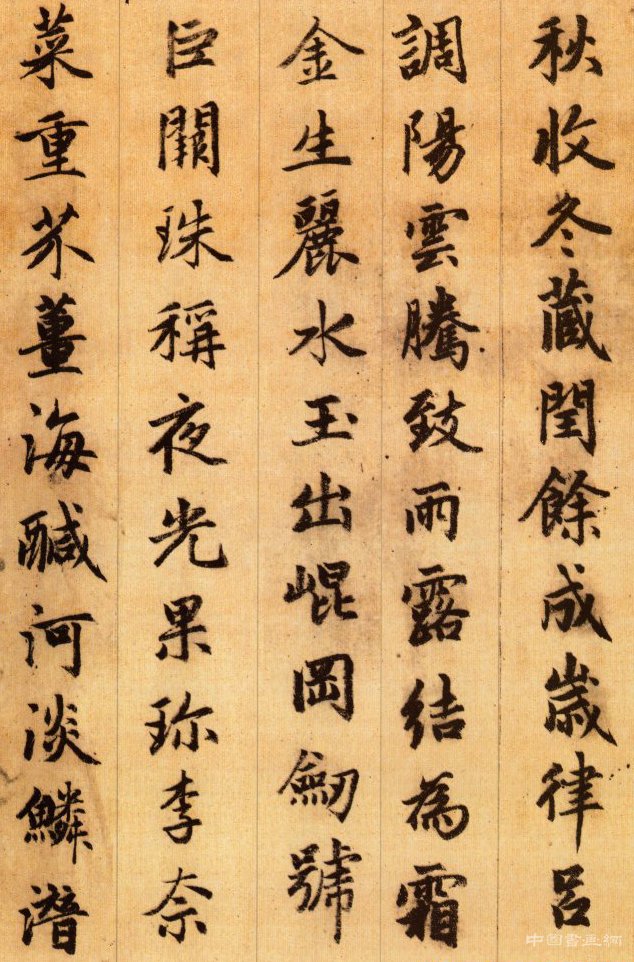 秋收冬蔵閏餘成歲律呂
調陽雲騰致雨露結為霜
金生麗水玉出崐岡劒號
巨闕珠稱夜光果珎李柰
菜重芥薑海醎河淡鱗潛
中国書画網